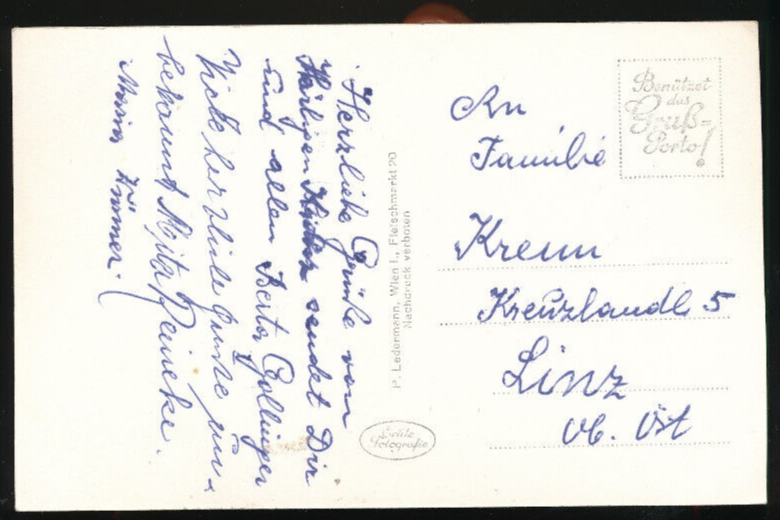 Herzliche Grüße vom
Heiligen sendet Dir
und allen Gollinger
Viele herzliche Grüße un-
bekannt Mitzi Reineke.
Maria
P. Ledermann, Wien I., Fleischmarkt 20
Nachdruck verboten
Echte
Fotografie
Benützet
das
Gruß=
Porto!
An
Familie
Krenn
Kreuzlandl 5
Linz
Ob. Öst